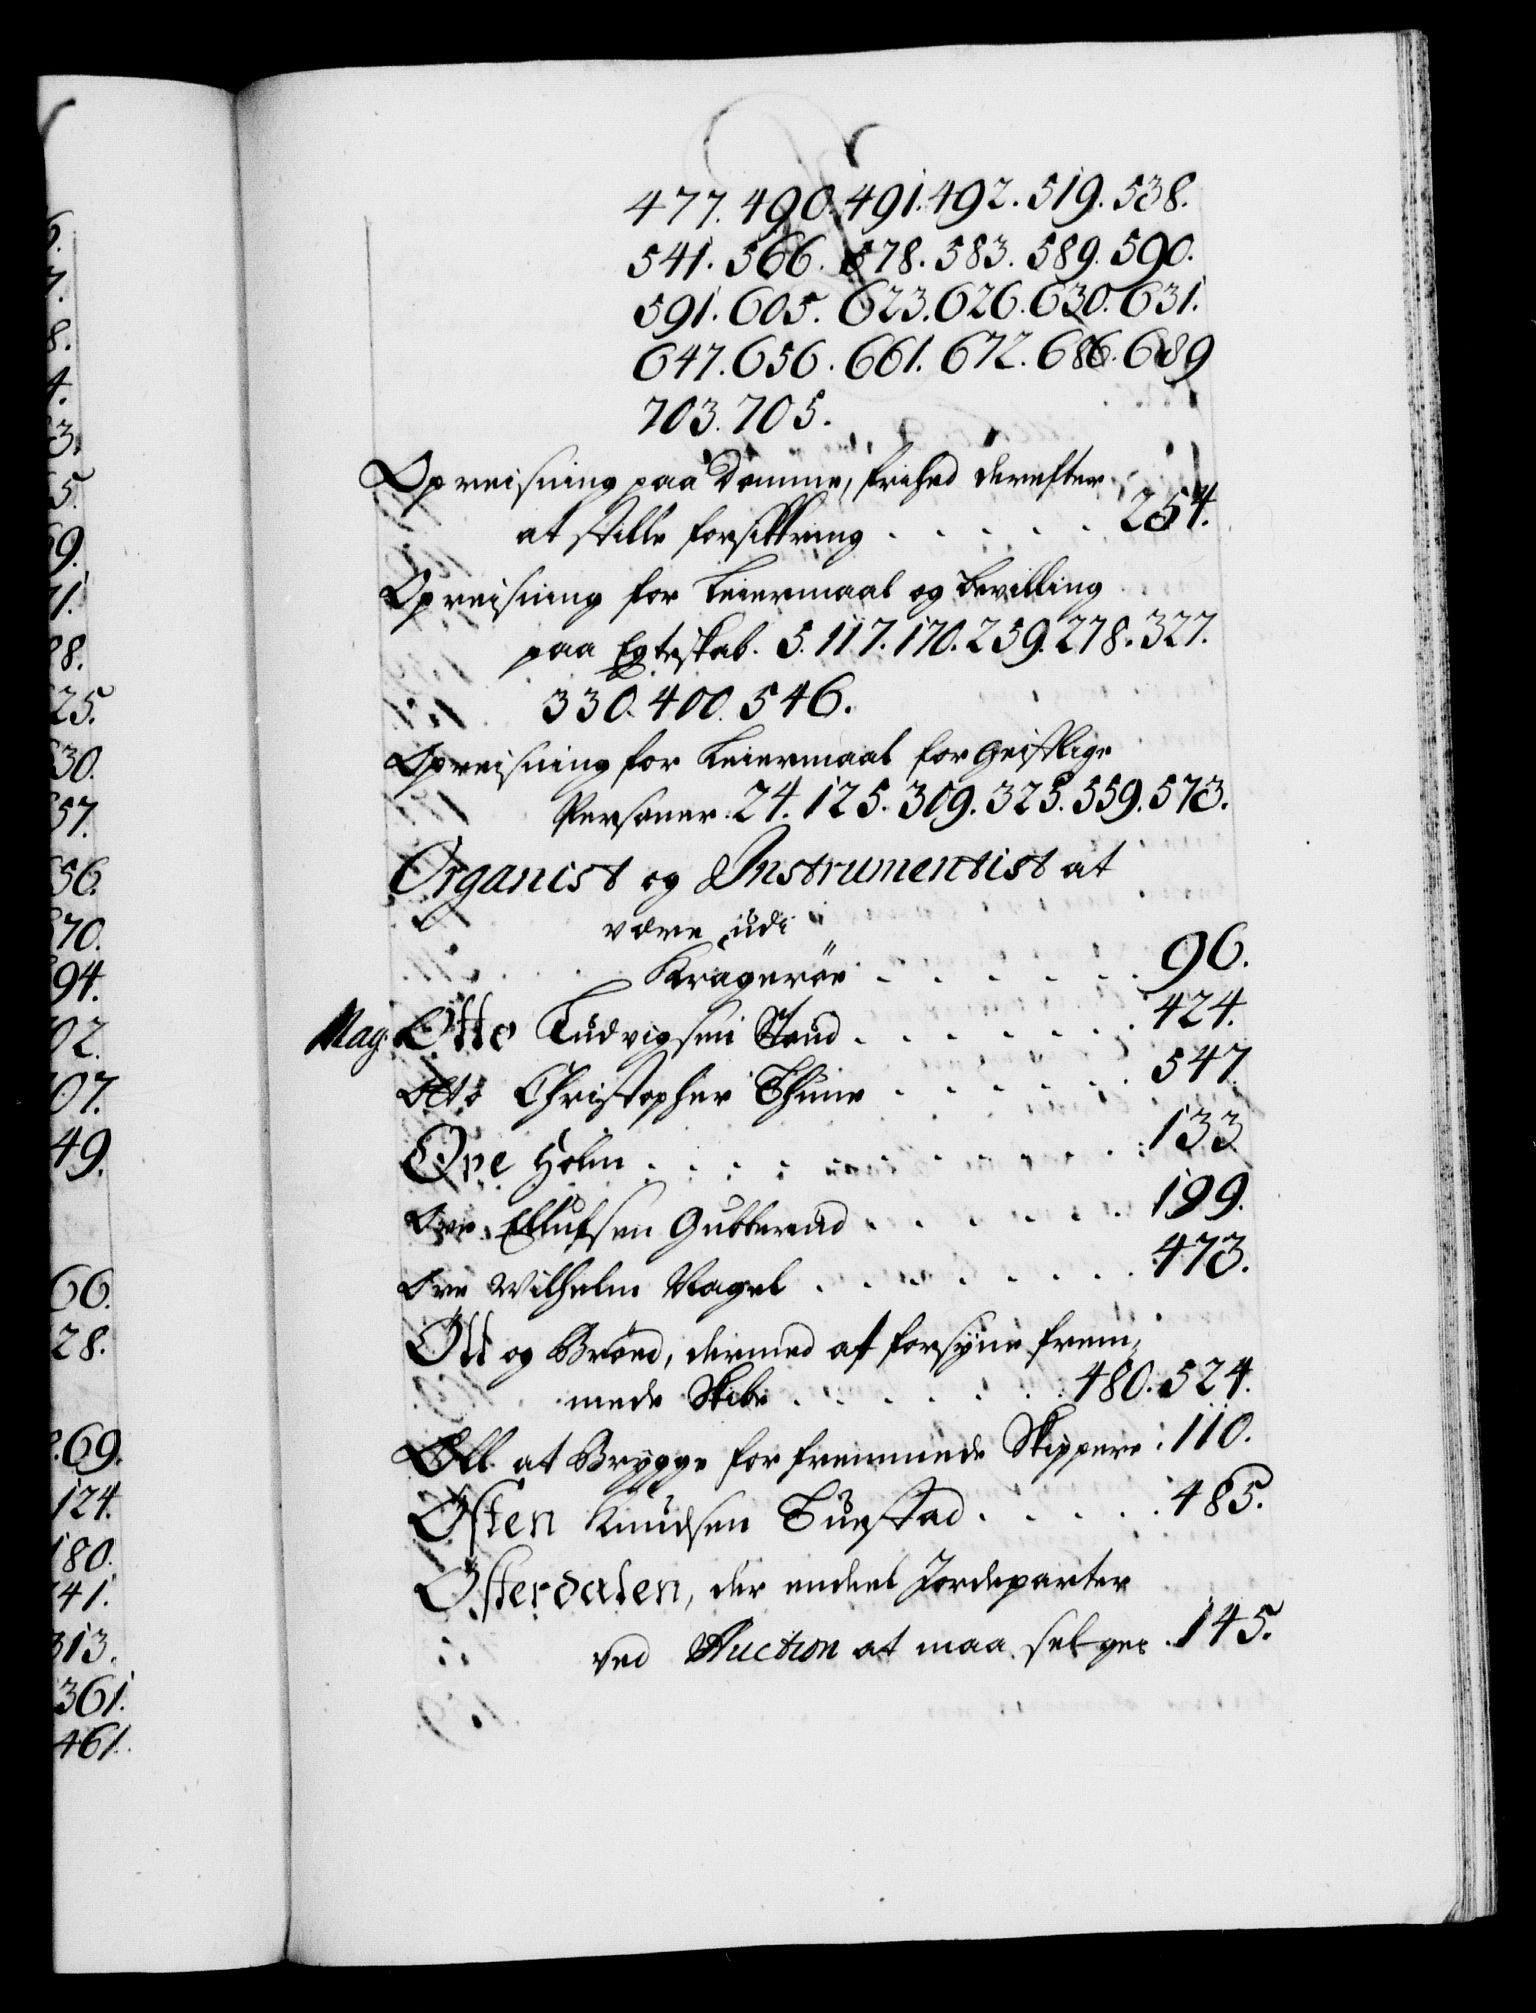 477. 490. 491. 492. 519. 538.
541. 566. 578. 583. 589. 590.
591. 605. 623. 626. 630. 631.
647. 656. 661. 672. 686. 689
703. 705.
Opreisning paa Domme, frihed derefter
at stille forsikkring . . . . . 254.
Opreisning for Leiermaal og bevilling
paa Egteskab. 5. 117. 170. 259. 278. 327.
330. 400. 546.
Opreisning for Leiermaal for Geistlige
Personer. 24. 125. 309. 325. 559. 573.
Organist og Instrumentist at
være udi
Kragerøe . . . . . . 96.
Mag. Otto Ludvigsen . . . . . . 424.
Otto Christopher Thune . . . . . . 547.
Ove Holm . . . . . . . . . . 133
Ove Ellufsen . . . . . . 199.
Ove Wilhelm Nagel . . . . . . . 473.
Öll og Bröd, dermed at forsyne frem-
mede Skibe . . . . . . 480. 524.
Öll at Brygge for fremmede Skippere . 110.
Östen Knudsen . . . . . 485.
Österdalen, der endeel Jordeparter
ved Auction at maa selges . 145.
6.
7.
8.
4.
3.
5.
69.
71.
88.
25.
30.
57.
56.
70.
94.
02.
107.
49.
66.
28.
269.
124.
180.
141.
313.
361.
461.